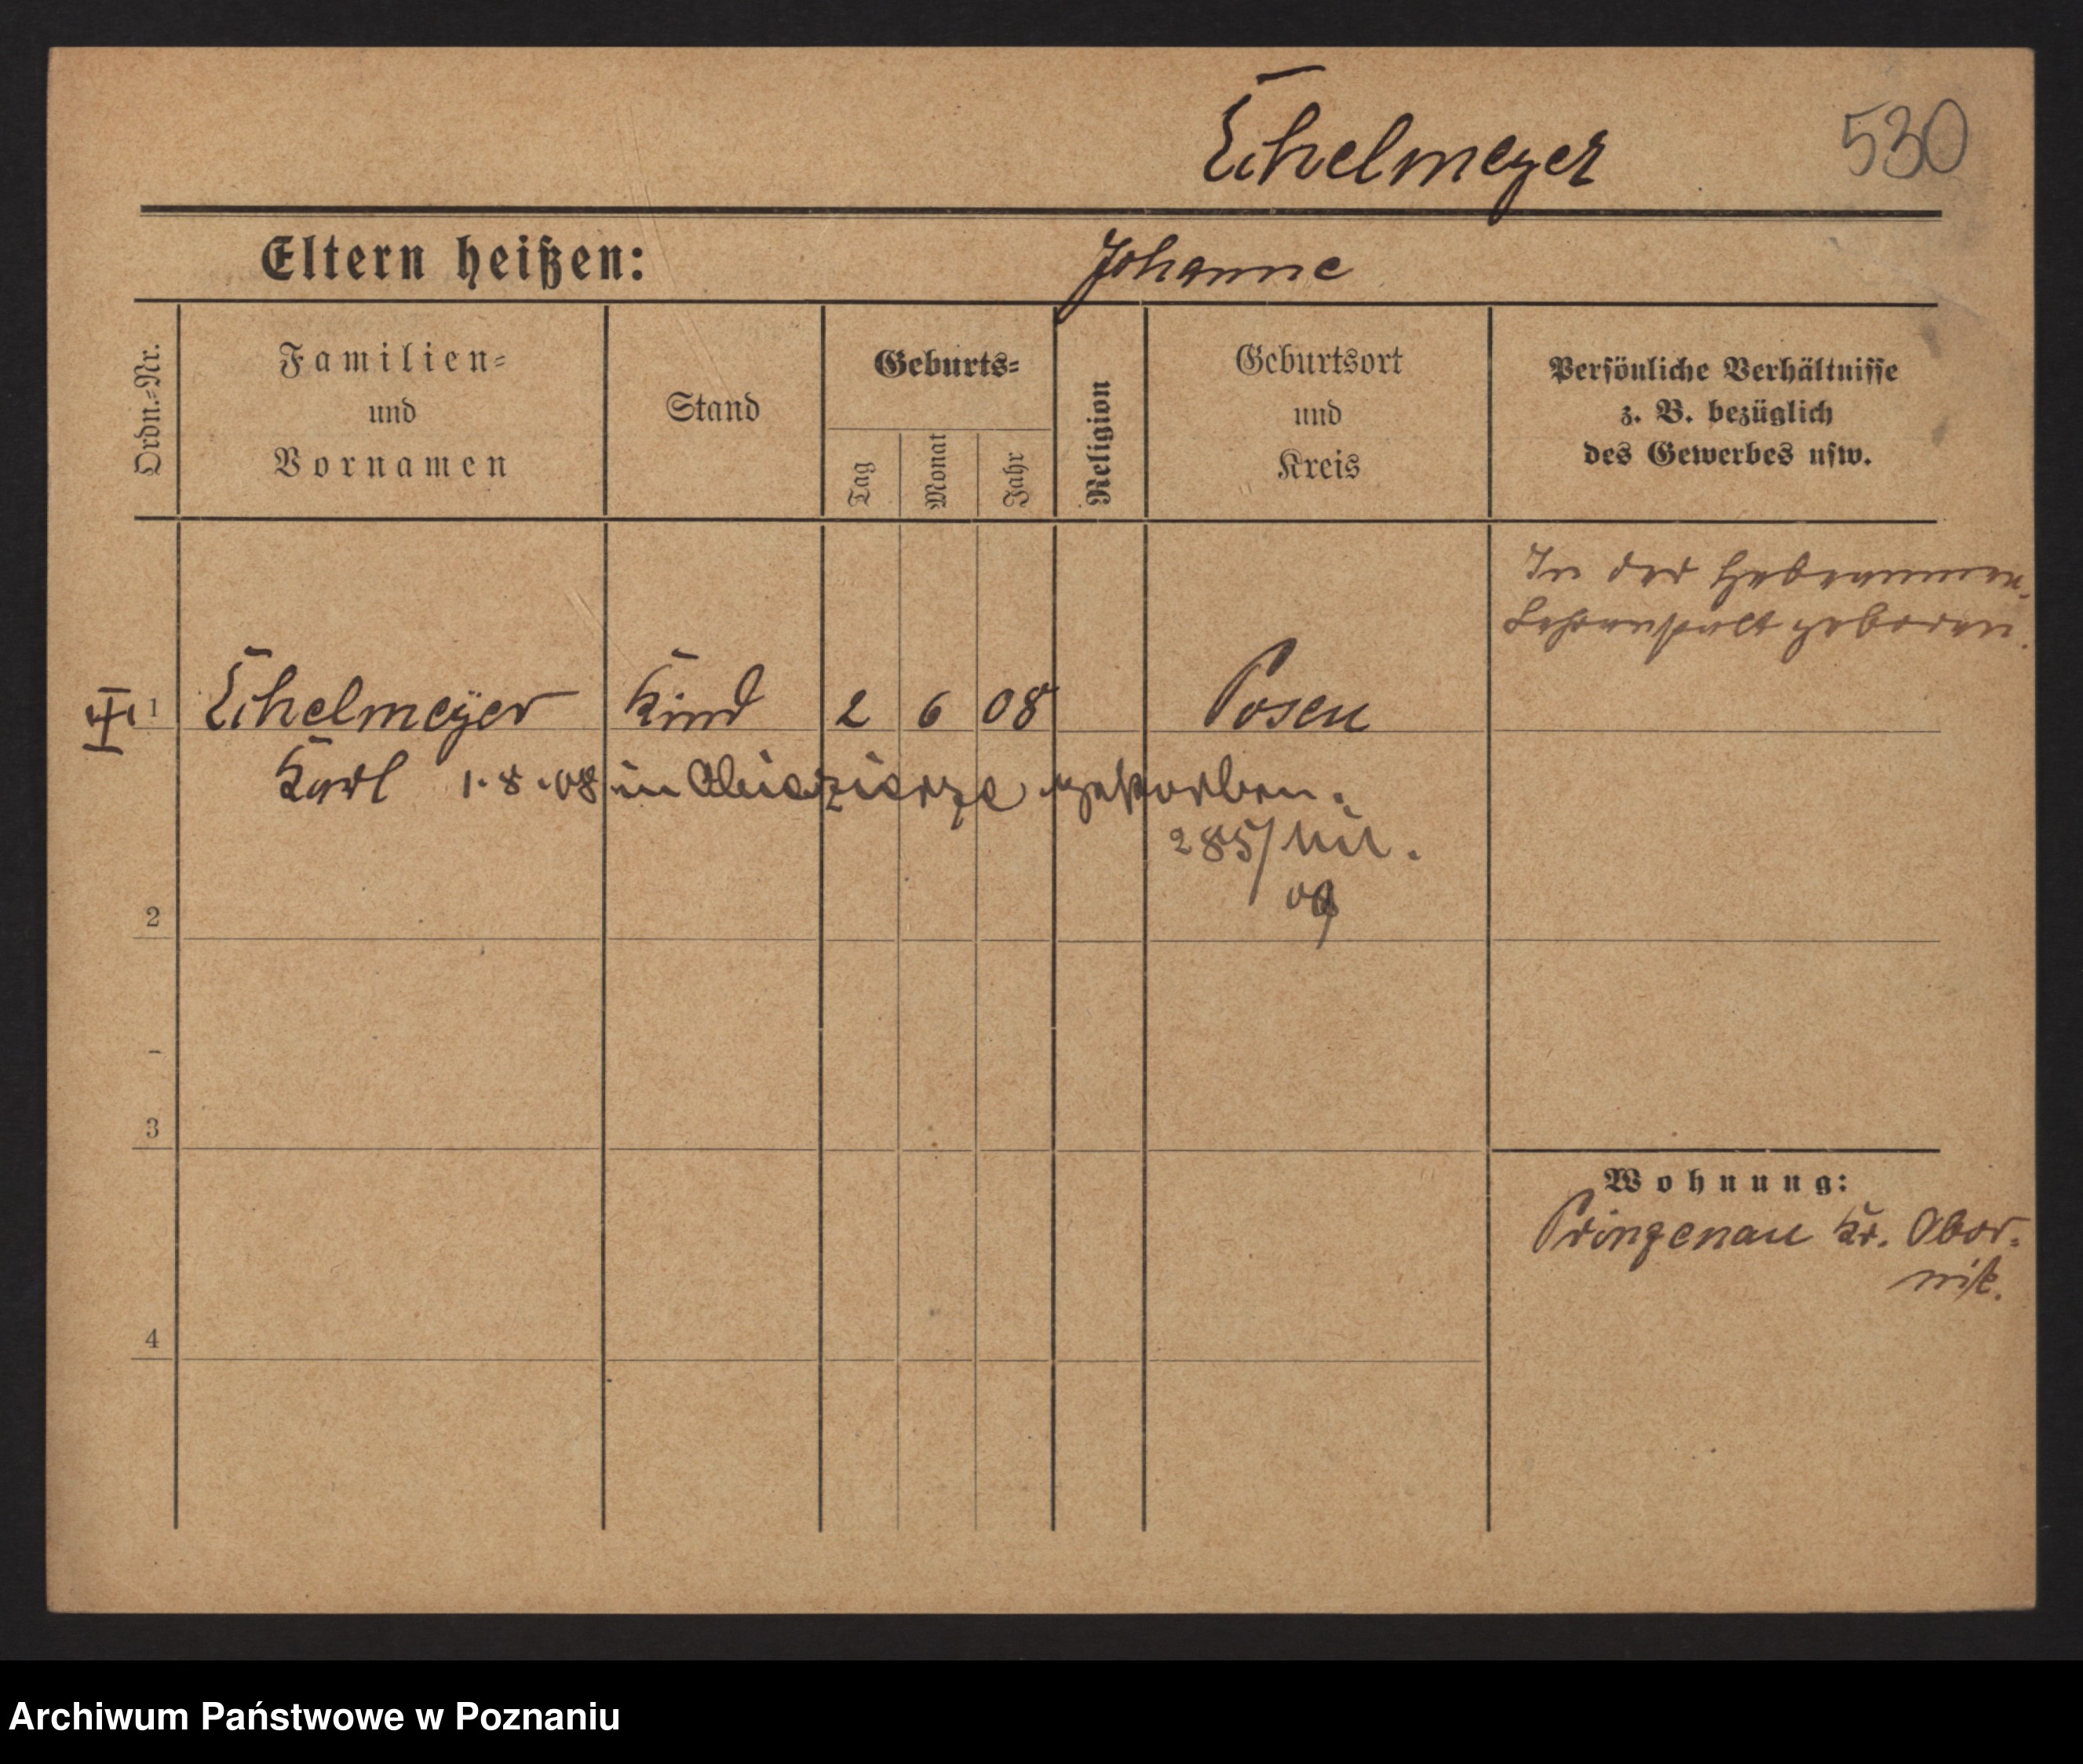 Eihelmeyer 530
Eltern heißen: Johanne
Ordn.-Nr.
Familien-
und
Vornamen
Stand
Geburts-
Tag
Monat
Jahr
Religion
Geburtsort
und
Kreis
Persönliche Verhältnisse
z. B. bezüglich
des Gewerbes usw.
In der Hebammen-
Lehranstalt geboren.
1 Eihelmeÿer Kind 2 6 08 Posen
Karl 1.8.08 in gestorben.
285/ VIII.
09
2
3
Wohnung:
Pringenau Kr. Obor-
nik.
4
Archiwum Państwowe w Poznaniu